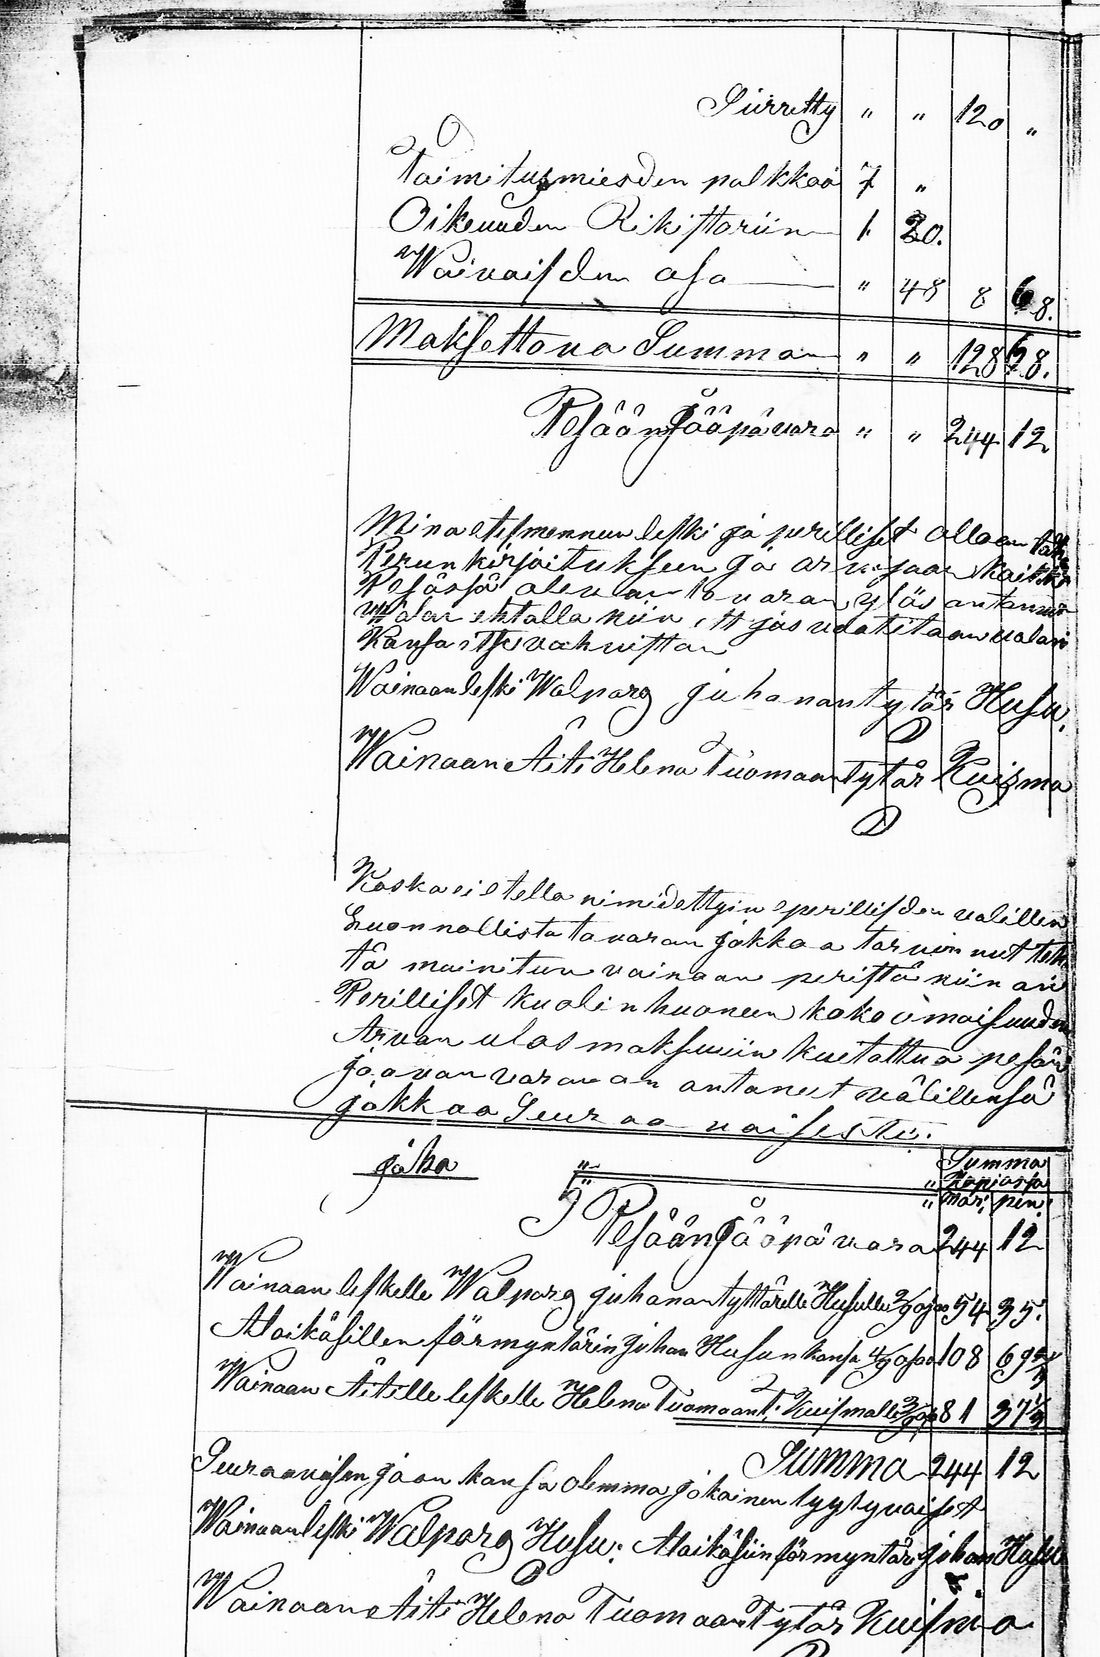 Siirretty " " 120 "
Toimitusmiesden palkkaa 7 "
Oikeuden Rikistoriin 1. 20.
Waivaisden osa " 48 8 68.
Maksettava Summa " " 128 68.
Pesään Jääpä vara " " 244 12
Mina etesmennen leski ja perilliset ollaan
Perunkirjoituksen ja arvujaan kaikki
Pesässä olevan tavaran ylös antanut
Walan ehtalla niin ett jos vaatitaan valani
Kansa itse vahvistan
Wainaan leski Walparg juhanan tytär Husu,
Wainaan Äiti Helena Tuomaan Tytär Kuisma
Koska ei etella nimidettyin perillisden välillen
Luonnollista tavaran jakkaa tarvinnut teh
tä mainitun vainaan peristä niin on
Perilliset kuolinhuoneen koko omaisuuden
Arvan ulos maksuuiin kuitattua pesän
jäävan varavan antanut välillensä
jakkaa Seuraavaisesti.
jaka " Summa
" Kopiossa
" mar. pen.
Pesään Jääpä vara 244 12
Wainaan leskelle Walparg juhanan tyttärelle Husulle 2/9 osa 54 35.
Alaikäsillen förmyntärin Johan Husun kansa 4/9 osaa 108 69
Wainaan Äitille leskelle Helena Tuomaan t. Kuismalle 3/9 osa 81 37
Summa 244 12
Seuraavaisen jaan kansa olemma jokainen tyytyvaiset
Wainaan leski Walparg Husu: Alaikäsiin förmyntär Johan Husu
Wainaan Äiti Helena Tuomaan Tytär Kuisma